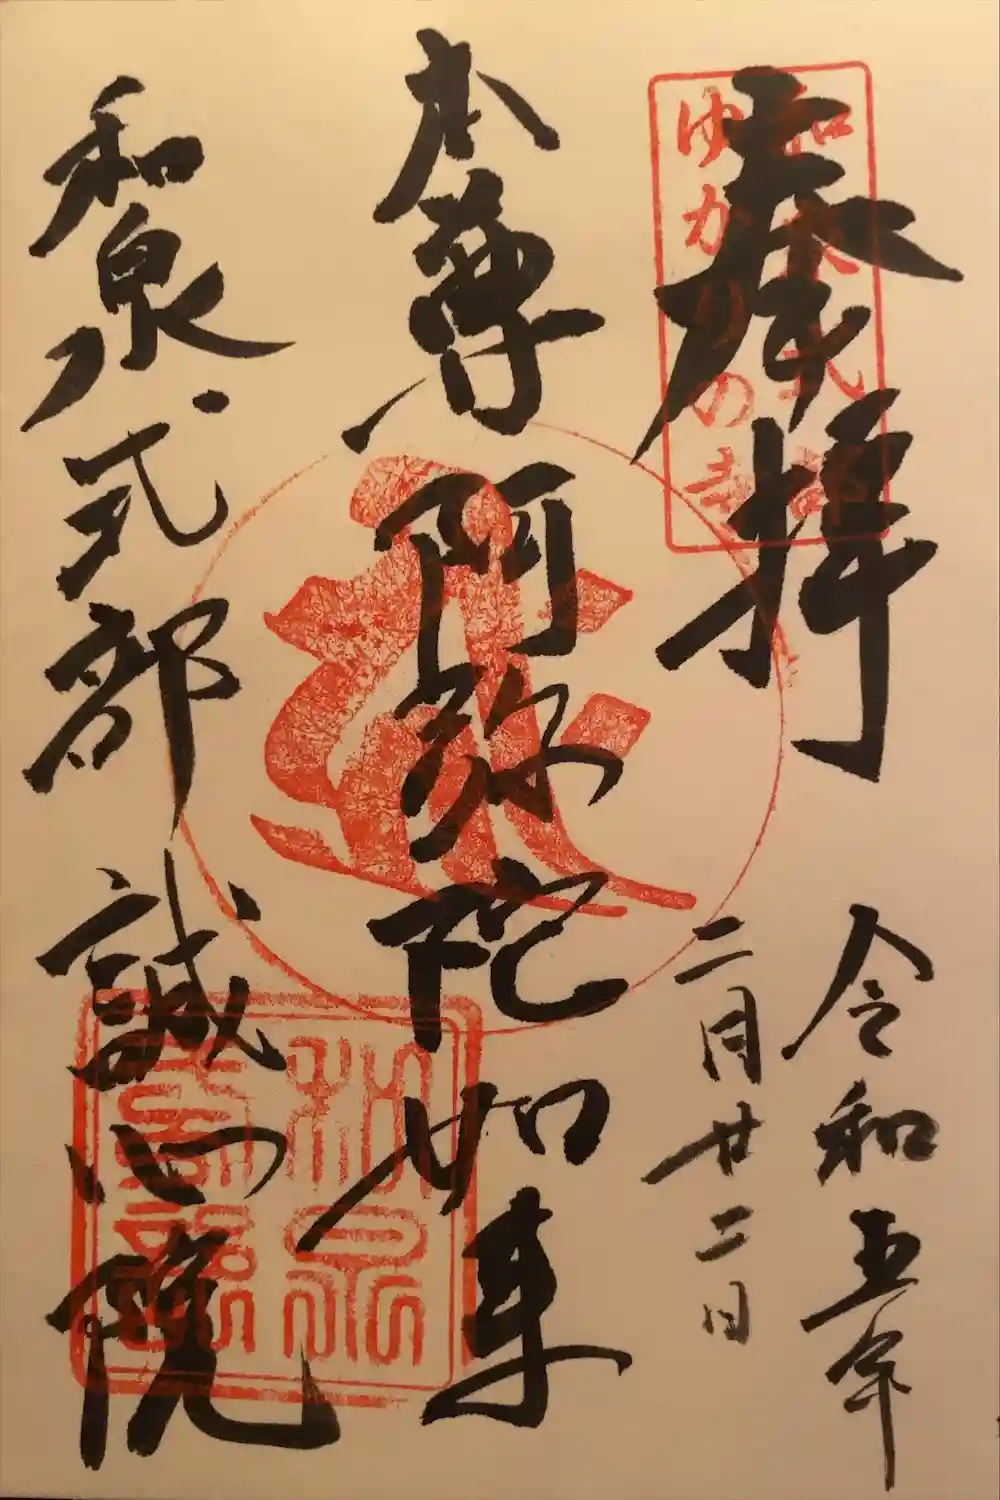 奉拝
和泉式部
ゆかりの寺
令和五年
二月廿二日
本尊 阿弥陀如来
和泉式部 誠心院